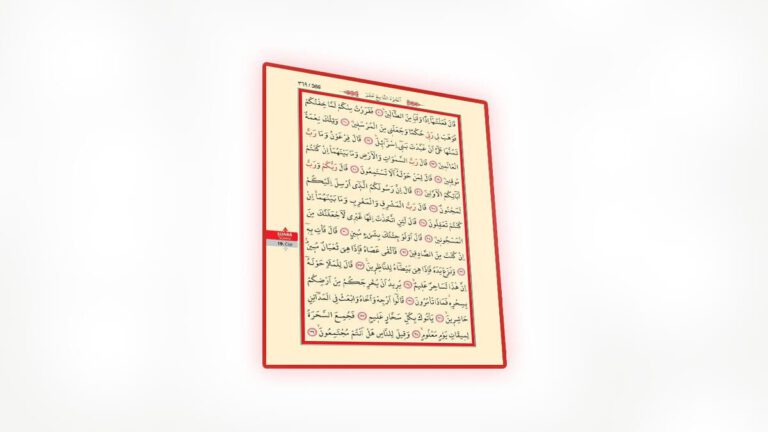 اَلْجُزْءُ التَّاسِعَ عَشَرَ
قَالَ فَعَلْتُهَٓا اِذًا وَاَنَا مِنَ الضَّٓالّ۪ينَ فَفَرَرْتُ مِنْكُمْ لَمَّا خِفْتُكُمْ
فَوَهَبَ ل۪ي رَبّ۪ي حُكْمًا وَجَعَلَن۪ي مِنَ الْمُرْسَل۪ينَ وَتِلْكَ نِعْمَةٌ
تَمُنُّهَا عَلَيَّ اَنْ عَبَّدْتَ بَن۪ٓي اِسْرَٓاء۪يلَ قَالَ فِرْعَوْنُ وَمَا رَبُّ
الْعَالَم۪ينَ قَالَ رَبُّ السَّمٰوَاتِ وَالْاَرْضِ وَمَا بَيْنَهُمَا اِنْ كُنْتُمْ
مُوقِن۪ينَ قَالَ لِمَنْ حَوْلَهُٓ اَلَا تَسْتَمِعُونَ قَالَ رَبُّكُمْ وَرَبُّ
اٰبَٓائِكُمُ الْاَوَّل۪ينَ قَالَ اِنَّ رَسُولَكُمُ الَّذ۪ٓي اُرْسِلَ اِلَيْكُمْ
لَمَجْنُونٌ قَالَ رَبُّ الْمَشْرِقِ وَالْمَغْرِبِ وَمَا بَيْنَهُمَا اِنْ
كُنْتُمْ تَعْقِلُونَ قَالَ لَئِنِ اتَّخَذْتَ اِلٰهًا غَيْر۪ي لَاَجْعَلَنَّكَ مِنَ
الْمَسْجُون۪ينَ قَالَ اَوَلَوْ جِئْتُكَ بِشَيْءٍ مُب۪ينٍ قَالَ فَأْتِ بِه۪ٓ
اِنْ كُنْتَ مِنَ الصَّادِق۪ينَ فَاَلْقٰى عَصَاهُ فَاِذَا هِيَ ثُعْبَانٌ مُب۪ينٌ
وَنَزَعَ يَدَهُ فَاِذَا هِيَ بَيْضَٓاءُ لِلنَّاظِر۪ينَ قَالَ لِلْمَلَاِ حَوْلَهُٓ
اِنَّ هٰذَا لَسَاحِرٌ عَل۪يمٌ يُر۪يدُ اَنْ يُخْرِجَكُمْ مِنْ اَرْضِكُمْ
بِسِحْرِه۪ فَمَاذَا تَأْمُرُونَ قَالُٓوا اَرْجِهْ وَاَخَاهُ وَابْعَثْ فِي الْمَدَٓائِنِ
حَاشِر۪ينَ يَأْتُوكَ بِكُلِّ سَحَّارٍ عَل۪يمٍ فَجُمِعَ السَّحَرَةُ
لِم۪يقَاتِ يَوْمٍ مَعْلُومٍ وَق۪يلَ لِلنَّاسِ هَلْ اَنْتُمْ مُجْتَمِعُونَ
ŞUARA
19. Cüz